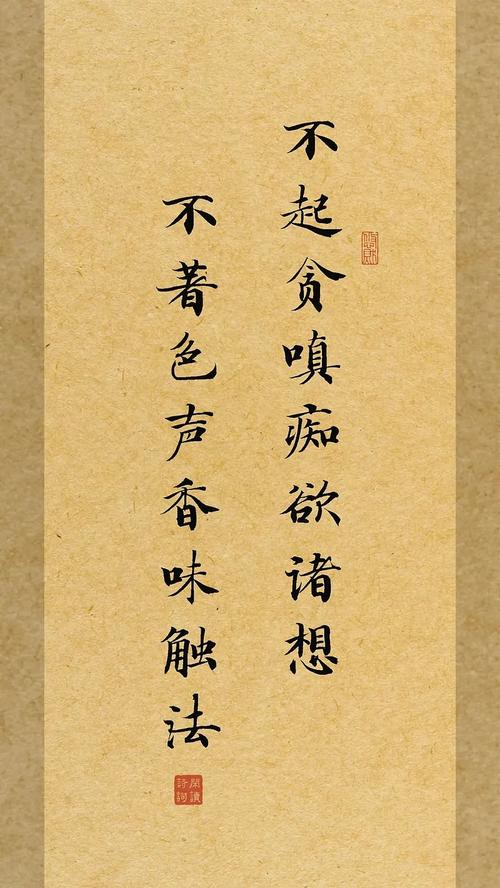 不起贪嗔痴欲诸想
不著色声香味触法
闲读诗词